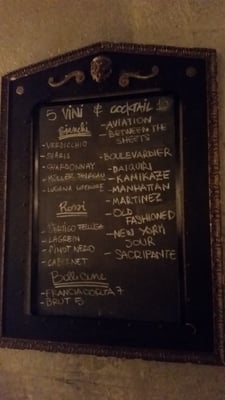 5 VINI & COCKTAIL 10
Bianchi
- VERDICCHIO
- CHARDONNAY
- MÜLLER THURGAU
- LUGANA
Rossi
- LAGREIN
- PINOT NERO
- CABERNET
Bollicine
- FRANCIACORTA 7
- BRUT 5
- AVIATION
- BETWEEN THE
SHEETS
- BOULEVARDIER
- DAIQUIRI
- KAMIKAZE
- MANHATTAN
- MARTINEZ
- OLD
FASHIONED
- NEW YORK
SOUR
- SACRIPANTE